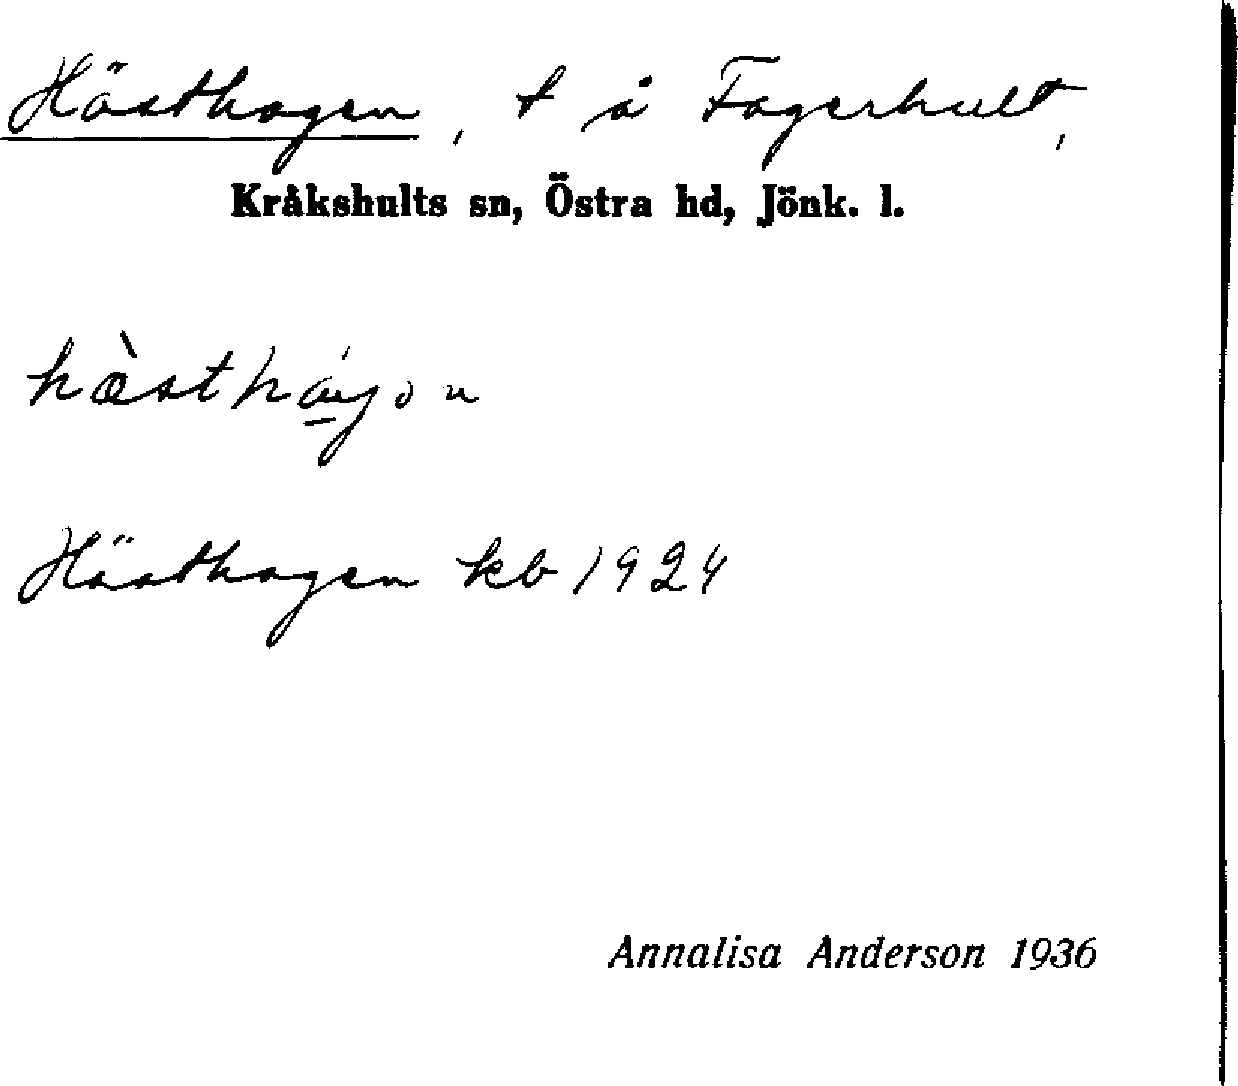 Hästhagen, t å Fagerhult,
Kråkshults sn, Östra hd, Jönk. l.
Hästhagen kb 1924
Annalisa Anderson 1936